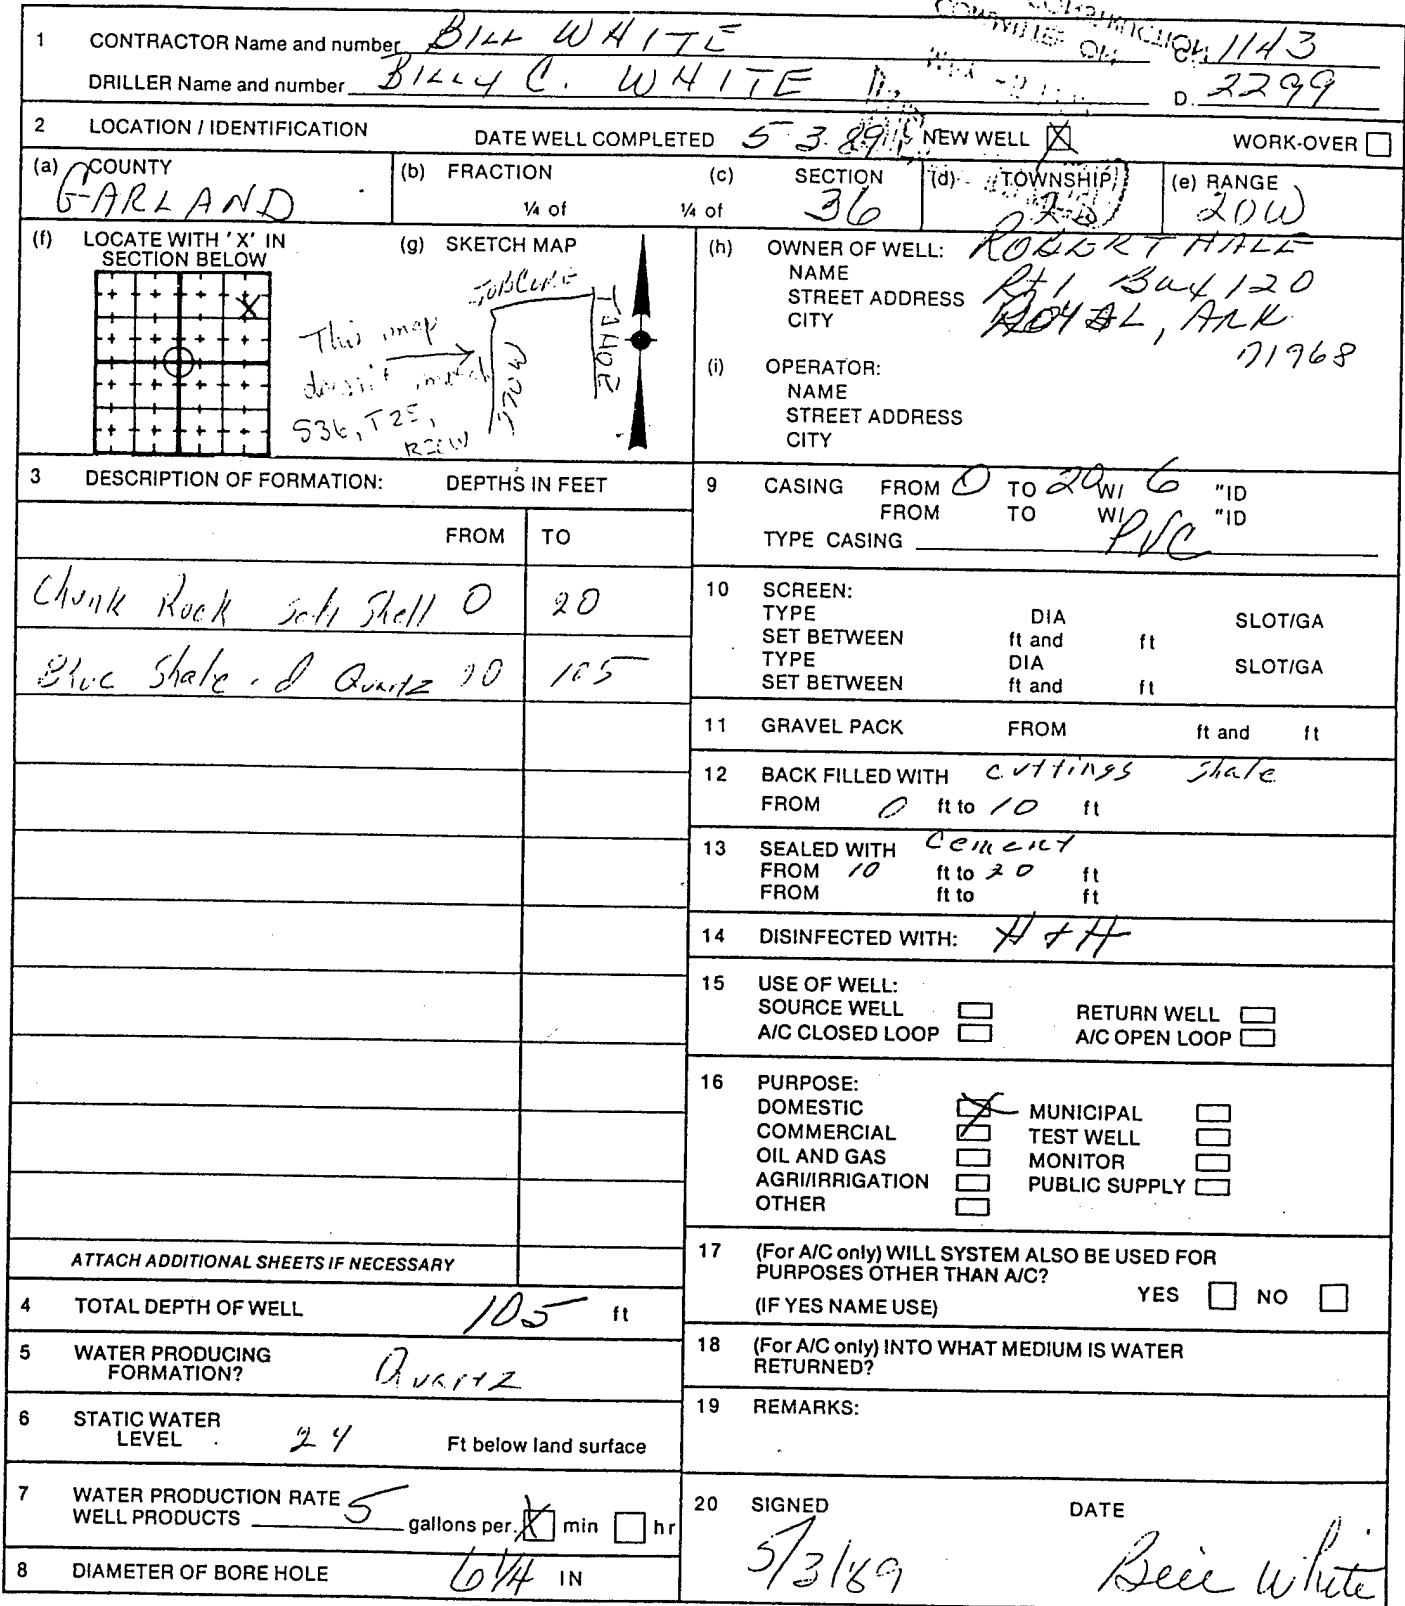 1 CONTRACTOR Name and number BILL WHITE C. 1143
DRILLER Name and number BILLY C. WHITE D. 2299
2 LOCATION / IDENTIFICATION DATE WELL COMPLETED 5 3 89 NEW WELL X WORK-OVER
(a) COUNTY (b) FRACTION (c) SECTION (d) TOWNSHIP (e) RANGE
GARLAND ¼ of ¼ of 36 20W
(f) LOCATE WITH 'X' IN SECTION BELOW
X
(g) SKETCH MAP
TAHOE
This map
doesn't match
S36, T2S,
R20W
(h) OWNER OF WELL: ROBERT HALE
NAME Rt 1 Box 120
STREET ADDRESS ROYAL, ARK
CITY 71968
(i) OPERATOR:
NAME
STREET ADDRESS
CITY
3 DESCRIPTION OF FORMATION: DEPTHS IN FEET
FROM TO
Chunk Rock Shell 0 20
Blue Shale Quartz 20 105
ATTACH ADDITIONAL SHEETS IF NECESSARY
4 TOTAL DEPTH OF WELL 105 ft
5 WATER PRODUCING
FORMATION? Quartz
6 STATIC WATER
LEVEL 24 Ft below land surface
7 WATER PRODUCTION RATE
WELL PRODUCTS 5 gallons per X min hr
8 DIAMETER OF BORE HOLE 6 1/4 IN
9 CASING FROM 0 TO 20 W/ 6 "ID
FROM TO W/ "ID
TYPE CASING PVC
10 SCREEN:
TYPE DIA SLOT/GA
SET BETWEEN ft and ft
TYPE DIA SLOT/GA
SET BETWEEN ft and ft
11 GRAVEL PACK FROM ft and ft
12 BACK FILLED WITH cuttings shale
FROM 0 ft to 10 ft
13 SEALED WITH Cement
FROM 10 ft to 20 ft
FROM ft to ft
14 DISINFECTED WITH: H+H
15 USE OF WELL:
SOURCE WELL RETURN WELL
A/C CLOSED LOOP A/C OPEN LOOP
16 PURPOSE:
DOMESTIC X MUNICIPAL
COMMERCIAL TEST WELL
OIL AND GAS MONITOR
AGRI/IRRIGATION PUBLIC SUPPLY
OTHER
17 (For A/C only) WILL SYSTEM ALSO BE USED FOR
PURPOSES OTHER THAN A/C?
(IF YES NAME USE) YES NO
18 (For A/C only) INTO WHAT MEDIUM IS WATER
RETURNED?
19 REMARKS:
20 SIGNED DATE
5/3/89 Bill White